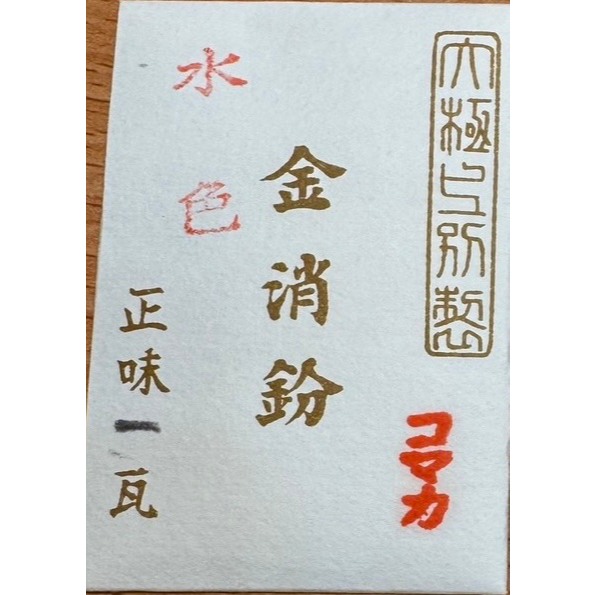 大極上別製
コマカ
金消鈖
水色
正味一瓦